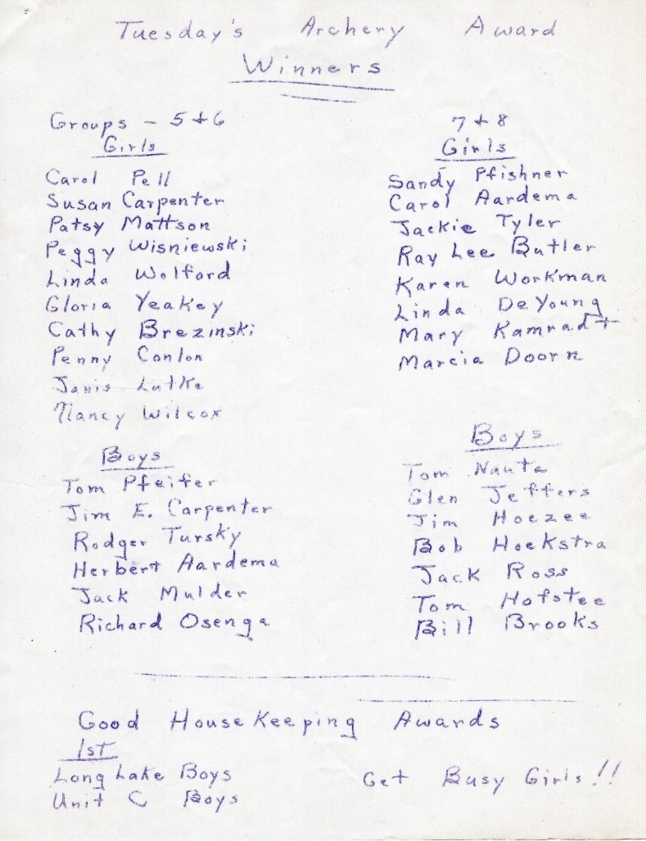 Tuesday's Archery Award
Winners
Groups - 5 & 6
Girls
Carol Pell
Susan Carpenter
Patsy Mattson
Peggy Wisniewski
Linda Wolford
Gloria Yeakey
Cathy Brezinski
Penny Conlon
Janis Lutke
Nancy Wilcox
Boys
Tom Pfeifer
Jim E. Carpenter
Rodger Tursky
Herbert Aardema
Jack Mulder
Richard Osenga
7 & 8
Girls
Sandy Pfishner
Carol Aardema
Jackie Tyler
Ray Lee Butler
Karen Workman
Linda DeYoung
Mary Kamradt
Marcia Doorn
Boys
Tom Nauta
Glen Jeffers
Jim Hoezee
Bob Hoekstra
Jack Ross
Tom Hofstee
Bill Brooks
Good HouseKeeping Awards
1st
Long Lake Boys
Unit C Boys
Get Busy Girls!!